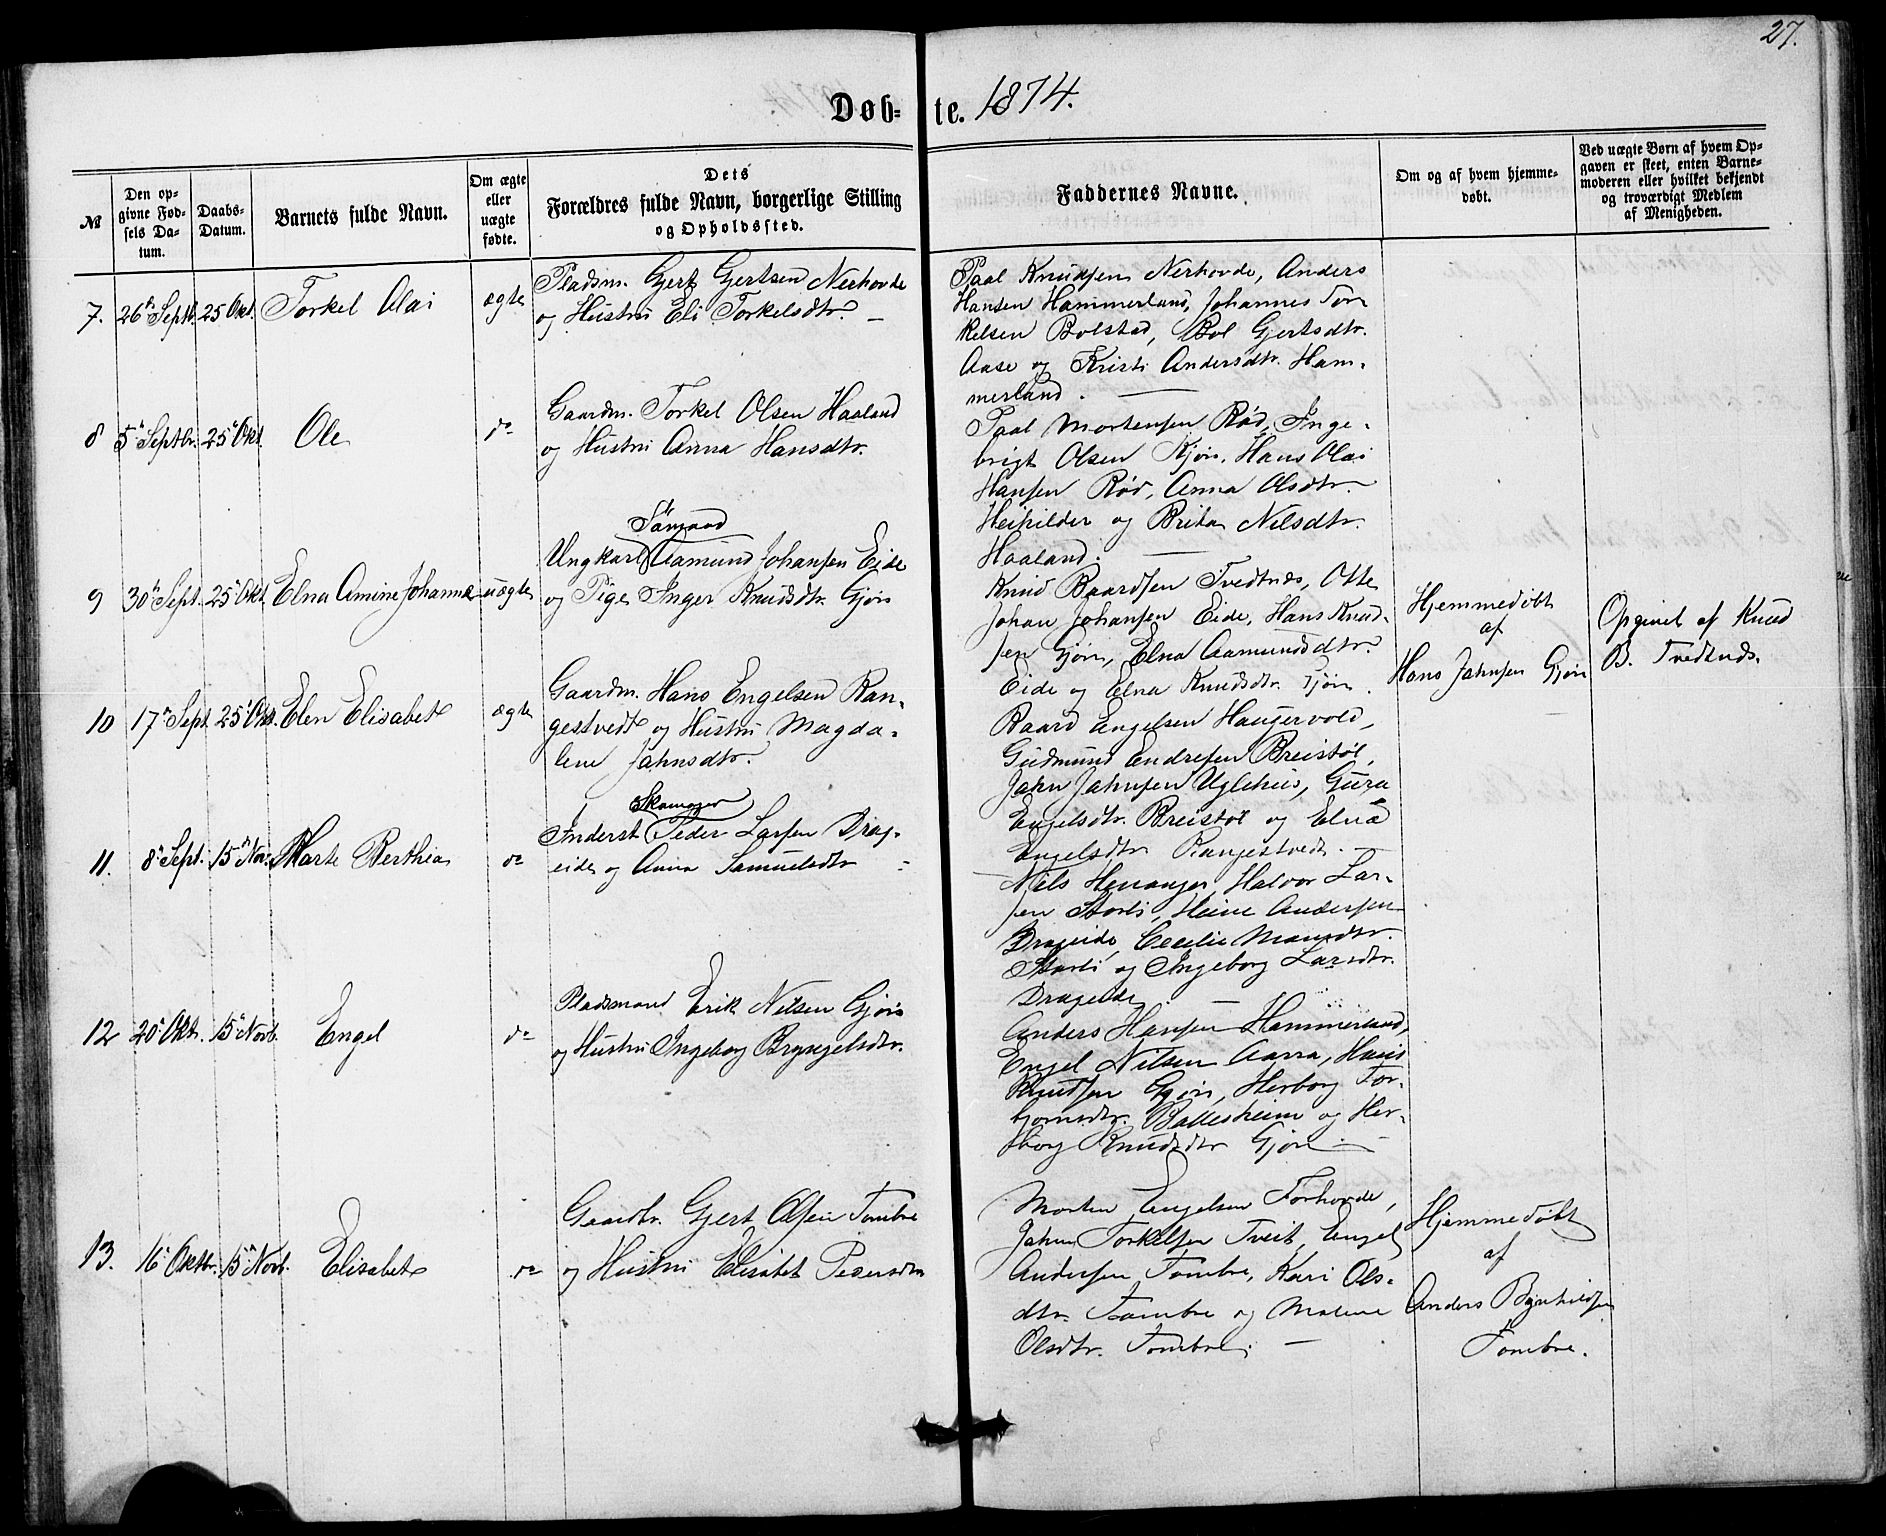 27.
Døb- te. 1874.
№
Den op-
givne Fød-
sels Da-
tum.
Daabs-
Datum.
Barnets fulde Navn.
Om ægte
eller
uægte
fødte.
Dets
Forældres fulde Navn, borgerlige Stilling
og Opholdssted.
Faddernes Navne.
Om og af hvem hjemme-
døbt.
Ved uægte Børn af hvem Op-
gaven er skeet, enten Barne-
moderen eller hvilket bekjendt
og troværdigt Medlem
af Menigheden.
7. 26 Septb. 25 Okt. Torkel Olai ægte
Pladsm. Gert Gertsen Nerhovde
og Hustru Eli Torkelsdtr. —
Paal Knudsen Nerhovde, Anders
Hansen Hammerland, Johannes Tor
kelsen Bolstad, Bol Gjertsdtr.
Aase og Kristi Andersdtr. Ham-
merland. —
8 5 Septbr. 25 Okt. Ole do
Gaardm. Torkel Olsen Haaland
og Hustru Anna Hansdtr.
Paal Mortensen Rød, Inge-
brigt Olsen Kjøn, Hans Olai
Hansen Rød, Anna Olsdtr.
og Brita Nilsdtr.
Haaland. —
9 30 Sept. 25 Okt. Elna Amine Johanna uægte
Sømand
Ungkarl Aamund Johansen Eide
og Pige Inger Knudsdtr. Gjøn
Knud Baardsen Tvedtnæs, Otte
Johan Johansen Eide, Hans Knud-
sen Gjøn, Elna Aamundsdtr.
Eide og Elna Knudsdtr. Gjøn.
Hjemmedøbt
af
Hans Jahnsen Gjøn
Opgivet af Knud
B. Tvedtnæs.
10 17 Sept 25 Okt. Elen Elisabet ægte
Gaardm. Hans Engelsen Ran-
gestvedt og Hustru Magda-
lene Jahnsdtr.
Baard Engelsen Haugervold,
Gudmund Endresen Breistøl,
Jahn Jahnsen Uglehus, Guru
Engelsdtr. Breistøl og Elna
Engelsdtr Rangestvedt. —
11. 8 Sept. 15 Nov. Marte Berthea do
Skomager
Inderst Peder Larsen Drag-
eide og Anna Samuelsdtr
Nils Henanger, Halvor Lar-
sen Storli, Heine Andersen
Drageide, Cecilie Monsdtr.
Storli og Ingeborg Larsdtr.
Drageide. —
12 20 Okt. 15 Novb. Engel do
Pladsmand Erik Nilsen Gjøn
og Hustru Ingeborg Brynjelsdtr.
Anders Hansen Hammerland,
Engel Nilsen Aarra, Hans
Knutsen Gjøn, Herborg Tor-
bjørnsdtr. Ballesheim og Her-
borg Knudsdtr Gjøn —
13. 16 Oktbr. 15 Novb. Elisabet do
Gaardbr. Gjert Olsen Tombre
og Hustru Elisabet Pedersdtr
Morten Engelsen Forhovde,
Jahn Torkelsen Tveit, Engel
Andersen Tombre, Kari Ols-
dtr. Tombre og Malene
Olsdtr. Tombre. —
Hjemmedøbt
af
Anders Brynhildsen
Tombre.